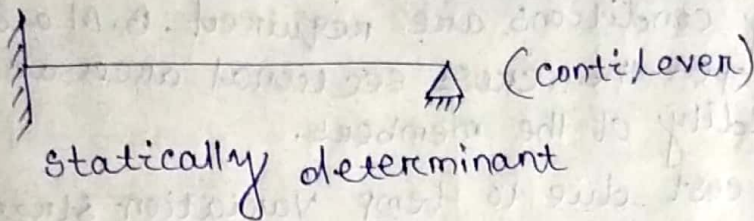 (contilever)
statically determinant